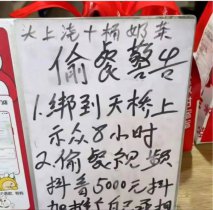 大上海十桶奶茶
偷餐警告
1.绑到天桥上
示众8小时
2.偷餐视频
抖音5000元抖